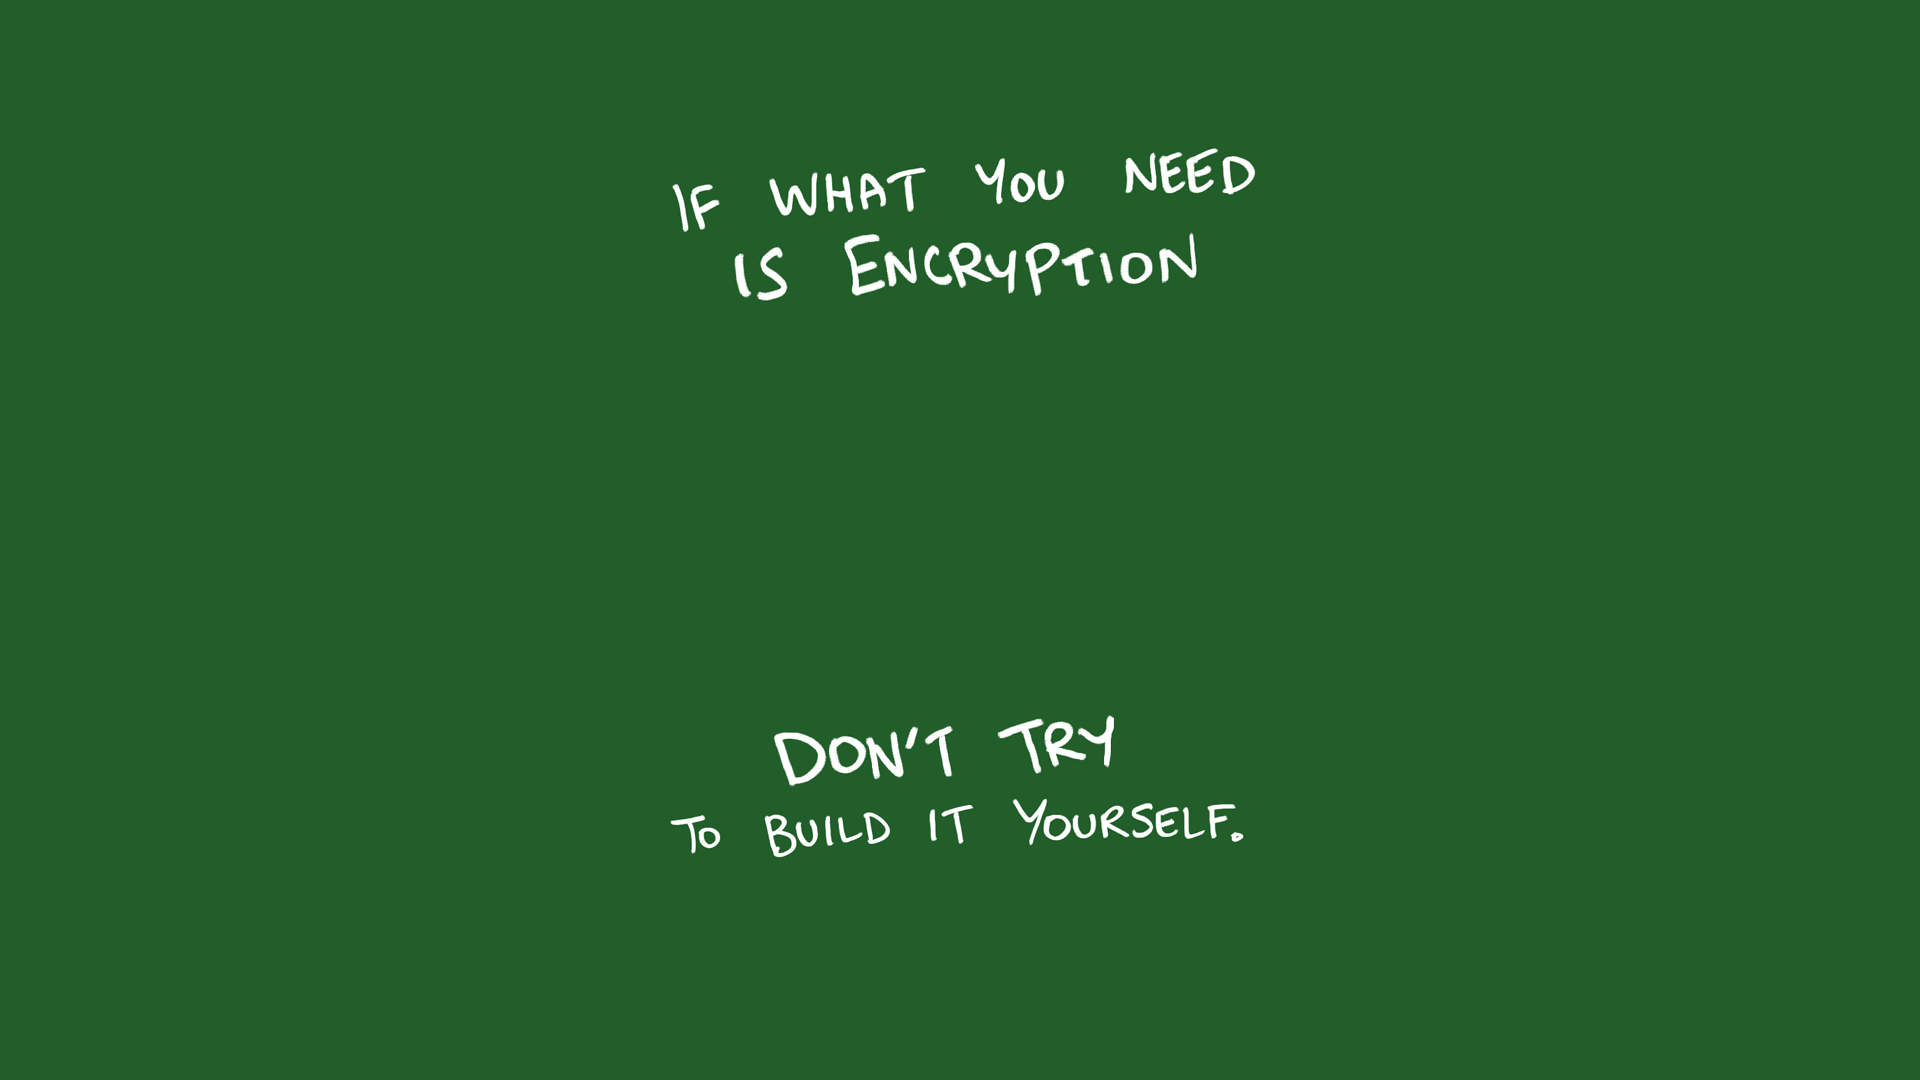 IF WHAT YOU NEED
IS ENCRYPTION
DON'T TRY
TO BUILD IT YOURSELF.